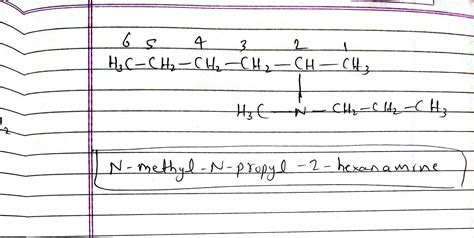 6 5 4 3 2 1
H₃C-CH₂-CH₂-CH₂-CH-CH₃
H₃C-N-CH₂-CH₂-CH₃
N-methyl-N-propyl-2-hexanamine